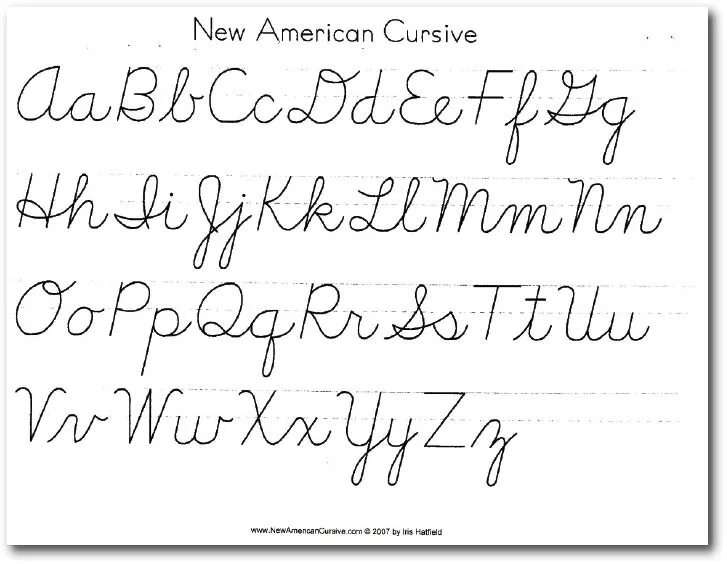 New American Cursive
Aa Bb Cc Dd Ee Ff Gg
Hh Ii Jj Kk Ll Mm Nn
Oo Pp Qq Rr Ss Tt Uu
Vv Ww Xx Yy Zz
www.NewAmericanCursive.com © 2007 by Iris Hatfield